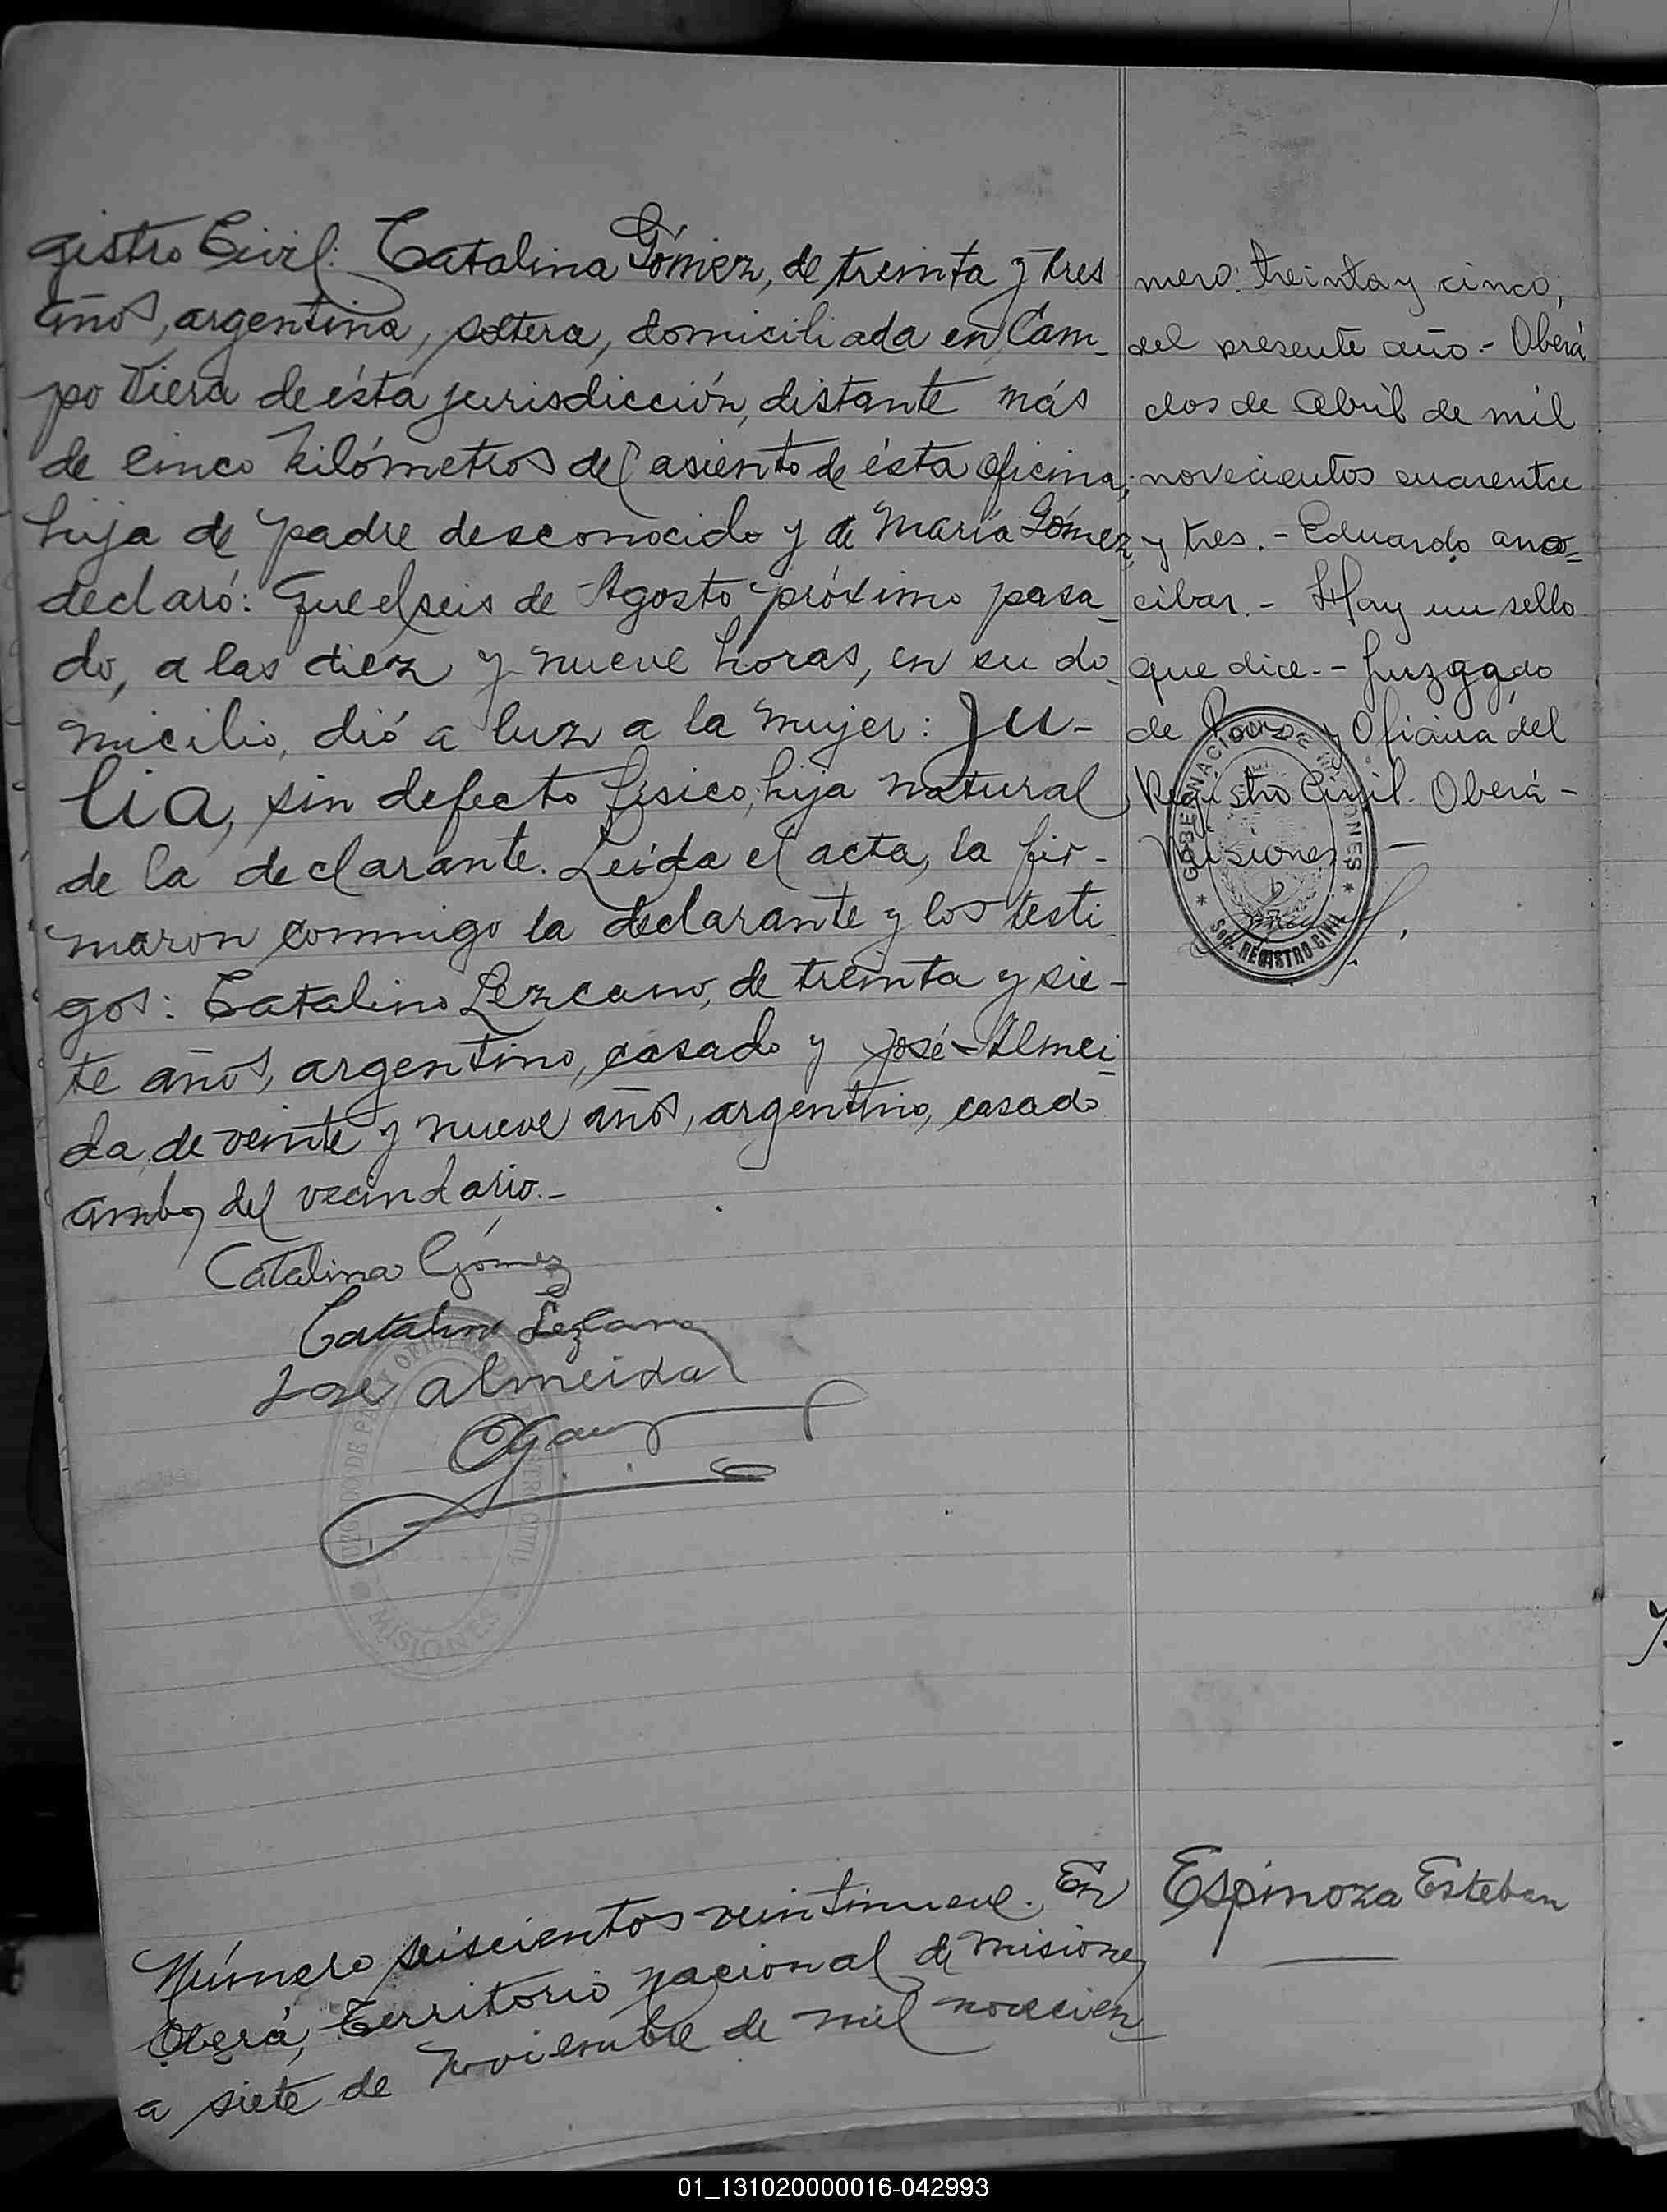 gistro Civil: Catalina Gómez, de treinta y tres
años, argentina, soltera, domiciliada en Cam-
po Viera de ésta jurisdicción, distante más
de cinco kilómetros del asiento de ésta oficina,
hija de padre desconocido y de María Gómez,
declaró: Que el seis de Agosto próximo pasa-
do, a las diez y nueve horas, en su do-
micilio, dió a luz a la mujer: Ju-
lia, sin defecto físico, hija natural
de la declarante. Leída el acta, la fir-
maron conmigo la declarante y los testi
gos: Catalino Lezcano, de treinta y sie-
te años, argentino, casado y José Almei-
da, de veinte y nueve años, argentino, casado
ambos del vecindario.-
Catalina Gómez
Catalino Lezcano
Jose Almeida
JUZGADO DE PAZ Y OFICINA DEL REGISTRO CIVIL
MISIONES
mero: treinta y cinco,
del presente año.- Oberá
dos de Abril de mil
novecientos cuarenta
y tres.- Eduardo
cibar.- Hay un sello
que dice.- Juzgado
de Paz y Oficina del
Registro Civil. Oberá-
Misiones.-
GOBERNACION DE MISIONES
Sec. REGISTRO CIVIL
Número seiscientos veintinueve. En
Oberá, Territorio Nacional de Misiones
a siete de Noviembre de mil novecien-
Espinoza Esteban
01_131020000016-042993